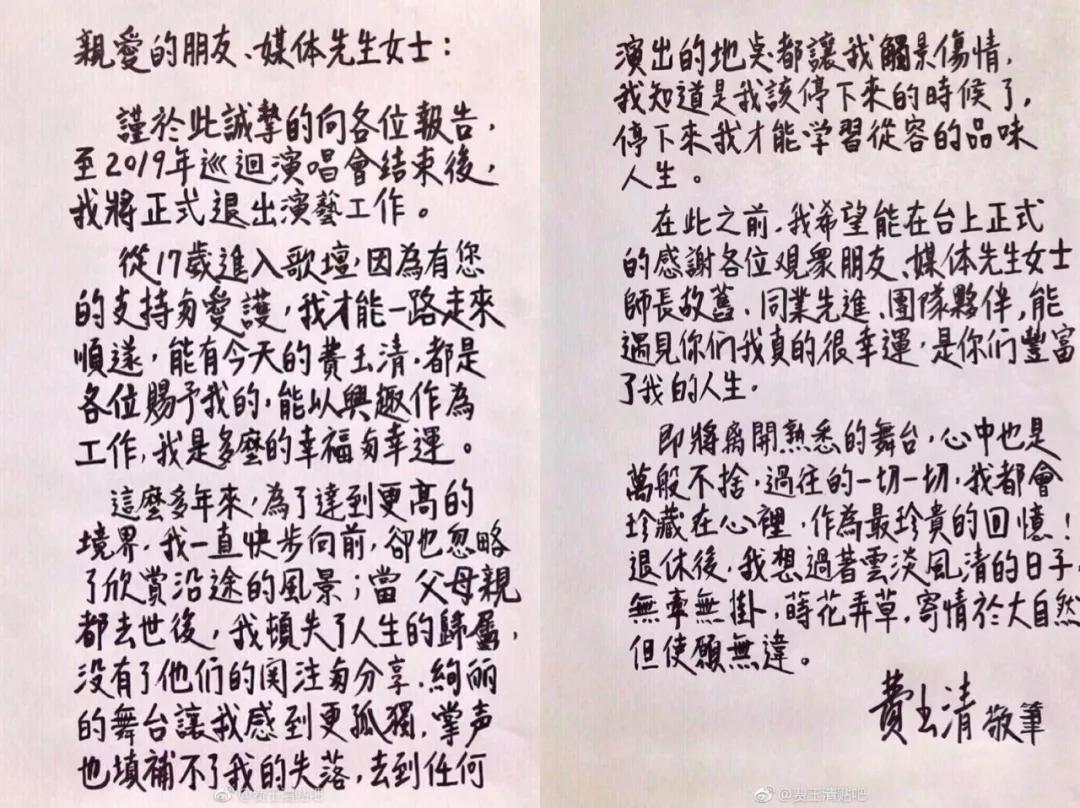 親愛的朋友、媒体先生女士：
謹於此誠摯的向各位報告，
至2019年巡迴演唱會结束後，
我將正式退出演藝工作。
從17歲進入歌壇，因為有您
的支持与愛護，我才能一路走來
順遂，能有今天的費玉清，都是
各位賜予我的，能以興趣作為
工作，我是多麼的幸福与幸運。
這麼多年來，為了達到更高的
境界，我一直快步向前，卻也忽略
了欣賞沿途的風景；當父母親
都去世後，我頓失了人生的歸屬，
没有了他们的関注与分享，絢丽
的舞台讓我感到更孤獨，掌声
也填補不了我的失落，去到任何
演出的地点都讓我觸景傷情，
我知道是我該停下來的時候了，
停下來我才能学習從容的品味
人生。
在此之前，我希望能在台上正式
的感謝各位观眾朋友、媒体先生女士
師長故舊、同業先進、團隊夥伴，能
遇見你们我真的很幸運，是你们豐富
了我的人生。
即將离開熟悉的舞台，心中也是
萬般不捨，過往的一切一切，我都會
珍藏在心裡，作為最珍貴的回憶！
退休後，我想過著雲淡風清的日子，
無牽無掛，蒔花弄草，寄情於大自然
但使願無違。
費玉清 敬筆
@费玉清贴吧
@费玉清贴吧